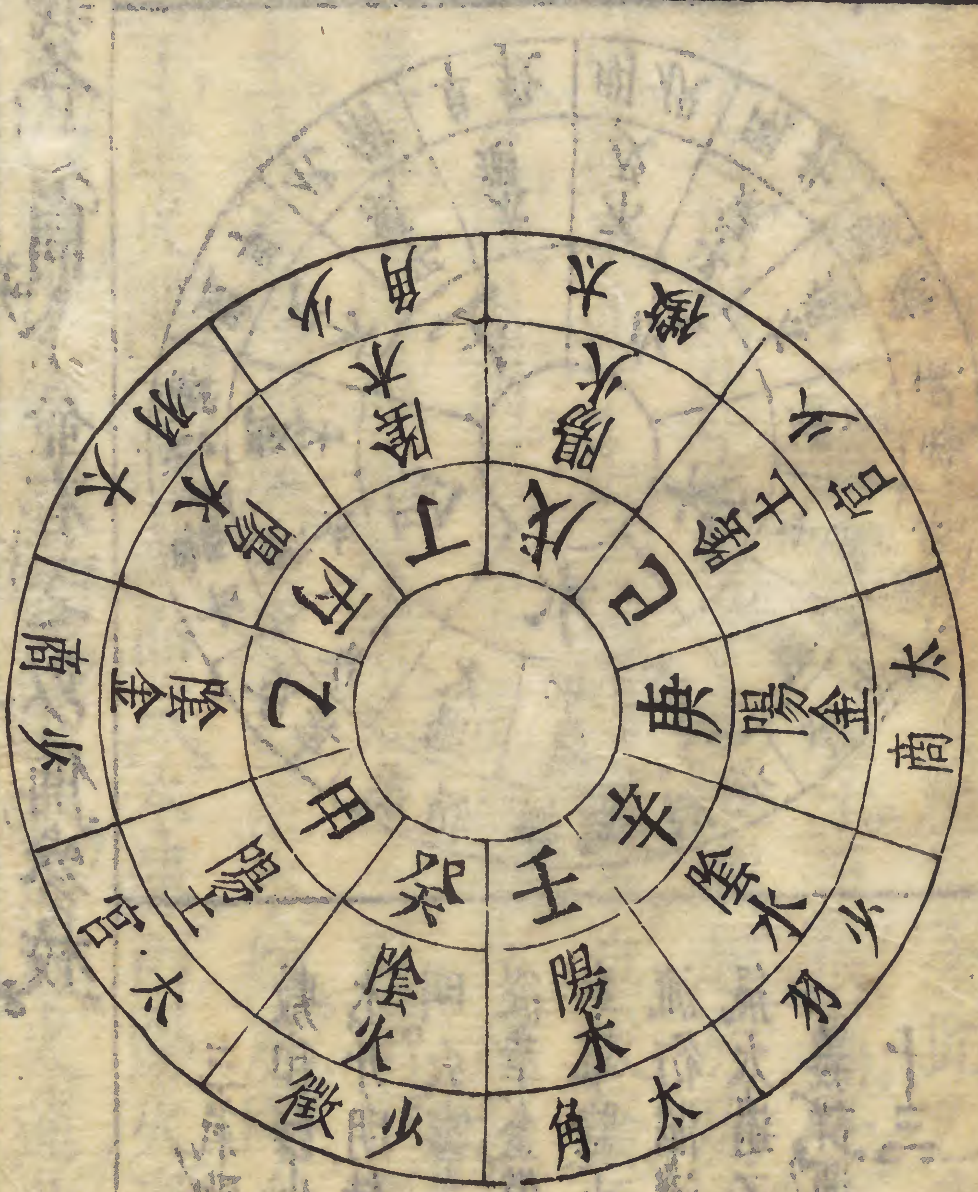 甲
陽土
太宮
乙
陰金
少商
丙
陽水
太羽
丁
陰木
少角
戊
陽火
太徵
己
陰土
少宮
庚
陽金
太商
辛
陰水
少羽
壬
陽木
太角
癸
陰火
少徵